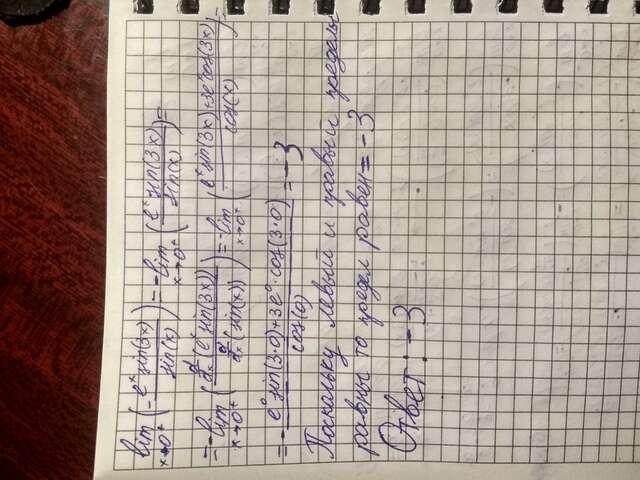 lim x→0⁺ (- eˣ sin(3x) / sin(x)) = - lim x→0⁺ (eˣ sin(3x) / sin(x)) =
= - lim x→0⁺ (d/dx (eˣ sin(3x)) / d/dx (sin(x))) = - lim x→0⁺ (eˣ sin(3x) + 3eˣ cos(3x) / cos(x)) =
= - e⁰ sin(3·0) + 3e⁰ · cos(3·0) / cos(0) = -3
Поскольку левый и правый пределы
равны то предел равен = -3
Ответ: -3